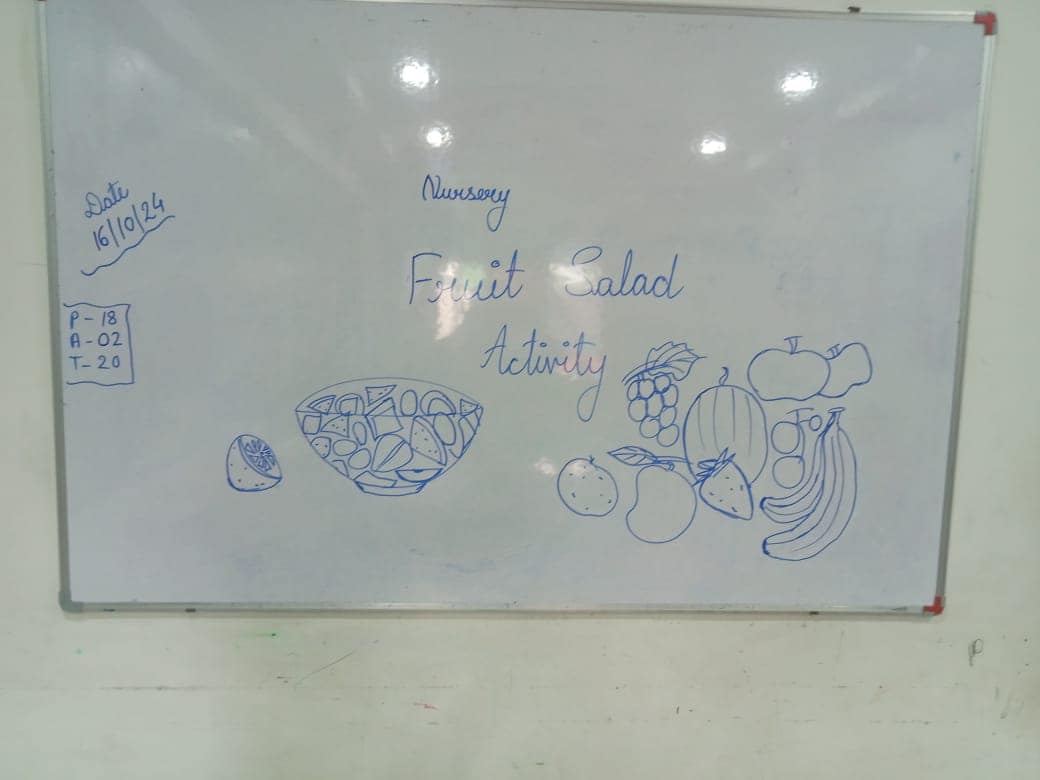 Date
16/10/24
P - 18
A - 02
T - 20
Nursery
Fruit Salad
Activity